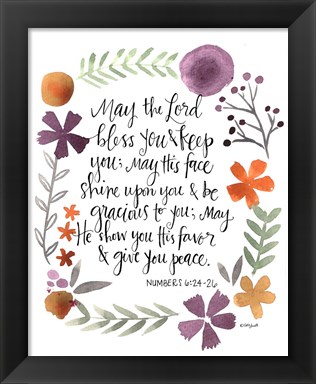 May the Lord
bless you & keep
you; May His face
shine upon you & be
gracious to you; May
He show you His favor
& give you peace.
NUMBERS 6:24-26